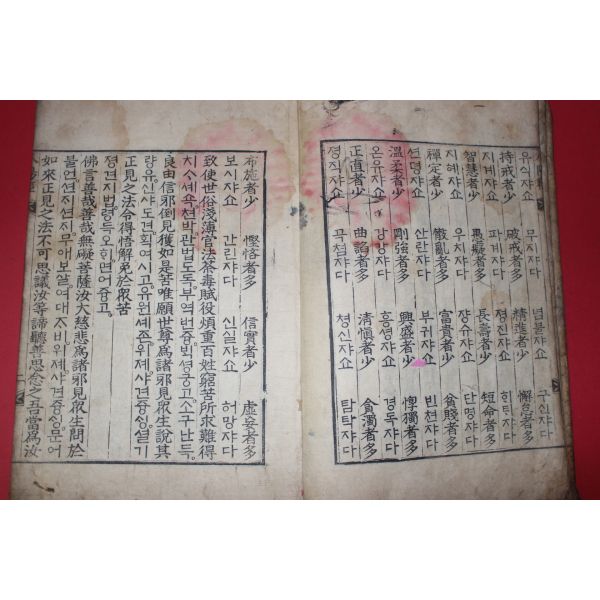 유식쟈쇼 무지쟈다 념불쟈쇼 구신쟈다
持戒者少 破戒者多 精進者少 懈怠者多
지계쟈쇼 파계쟈다 졍진쟈쇼 ᄒᆡᄐᆡ쟈다
智慧者少 愚癡者多 長壽者少 短命者多
지혜쟈쇼 우치쟈다 쟝슈쟈쇼 단명쟈다
禪定者少 散亂者多 富貴者少 貧賤者多
션뎡쟈쇼 산란쟈다 부귀쟈쇼 빈쳔쟈다
溫柔者少 剛強者多 興盛者少 惸獨者多
온유쟈쇼 강강쟈다 흥셩쟈쇼 경독쟈다
正直者少 曲諂者多 清愼者少 貪濁者多
졍직쟈쇼 곡쳠쟈다 쳥신쟈쇼 탐탁쟈다
布施者少 慳悋者多 信實者少 虛妄者多
보시쟈쇼 간린쟈다 신실쟈쇼 허망쟈다
致使世俗淺薄官法荼毒賦役煩重百姓窮苦所求難得
치ᄉᆞ셰쇽쳔박관법도독부역번즁ᄇᆡᆨ셩궁고소구난득
良由信邪倒見獲如是苦唯願世尊爲諸邪見衆生說其
량유신샤도견획여시고유원셰존위졔샤견즁ᄉᆡᆼ셜기
正見之法令得悟解免於衆苦
졍견지법령득오ᄒᆡ면어즁고
佛言善哉善哉無礙菩薩汝大慈悲爲諸邪見衆生問於
불언션ᄌᆡ션ᄌᆡ무애보살여대ᄌᆞ비위졔샤견즁ᄉᆡᆼ문어
如來正見之法不可思議汝等諦聽善思念之吾當爲汝